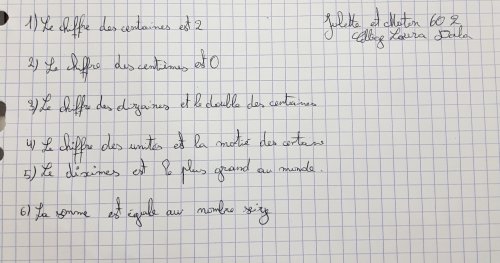 1) Le chiffre des centaines est 2
Juliette et Matin 602
Collège Laura Dala
2) Le chiffre des centimes est 0
3) Le chiffre des dizaines et le double des centaines
4) Le chiffre des unites et la motié des centaine
5) Le dixsimes est le plus grand au monde.
6) La somme est égale au nombre seize